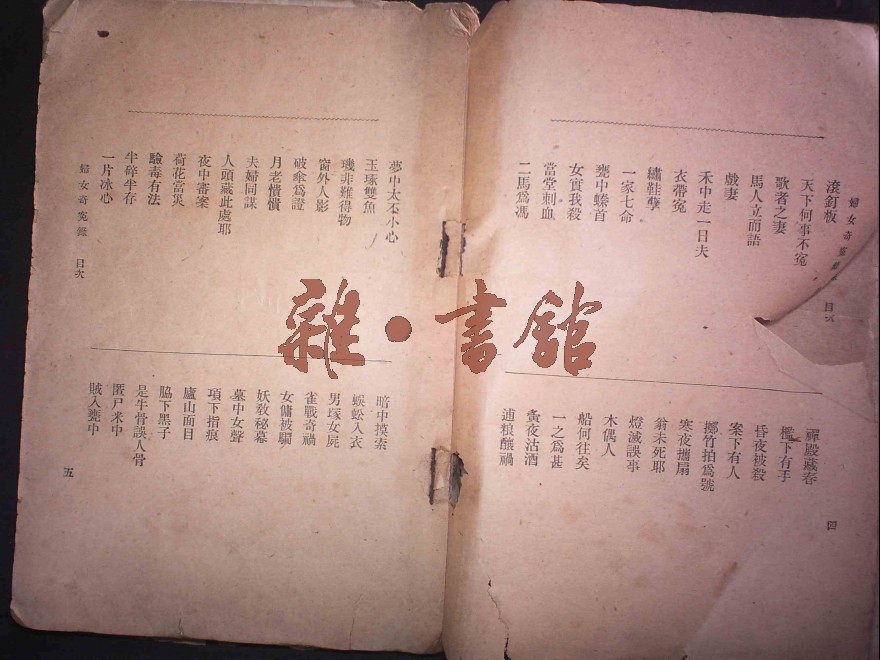 婦女奇冤錄 目次
滾釘板
天下何事不冤
歌者之妻
馬人立而語
戲妻
禾中走一日夫
衣帶冤
繡鞋孽
一家七命
甕中螓首
女實我殺
當堂刺血
二馬爲馮
禪殿藏春
檻下有手
昏夜被殺
案下有人
擲竹拍爲號
寒夜搧扇
翁未死耶
燈滅誤事
木偶人
船何往矣
一之爲甚
夤夜沽酒
逋粮釀禍
四
夢中太不小心
玉琢雙魚
璣非難得物
窗外人影
破傘爲證
月老憒憒
夫婦同謀
人頭藏此處耶
夜中審案
荷花當災
驗毒有法
半碎半存
一片冰心
婦女奇冤錄 目次
暗中摸索
蜈蚣入衣
男塚女屍
雀戰奇禍
女傭被騙
妖教秘幕
墓中女聲
項下指痕
廬山面目
脇下黑子
是牛骨誤人骨
匿尸米中
賊入甕中
五
雜·書館